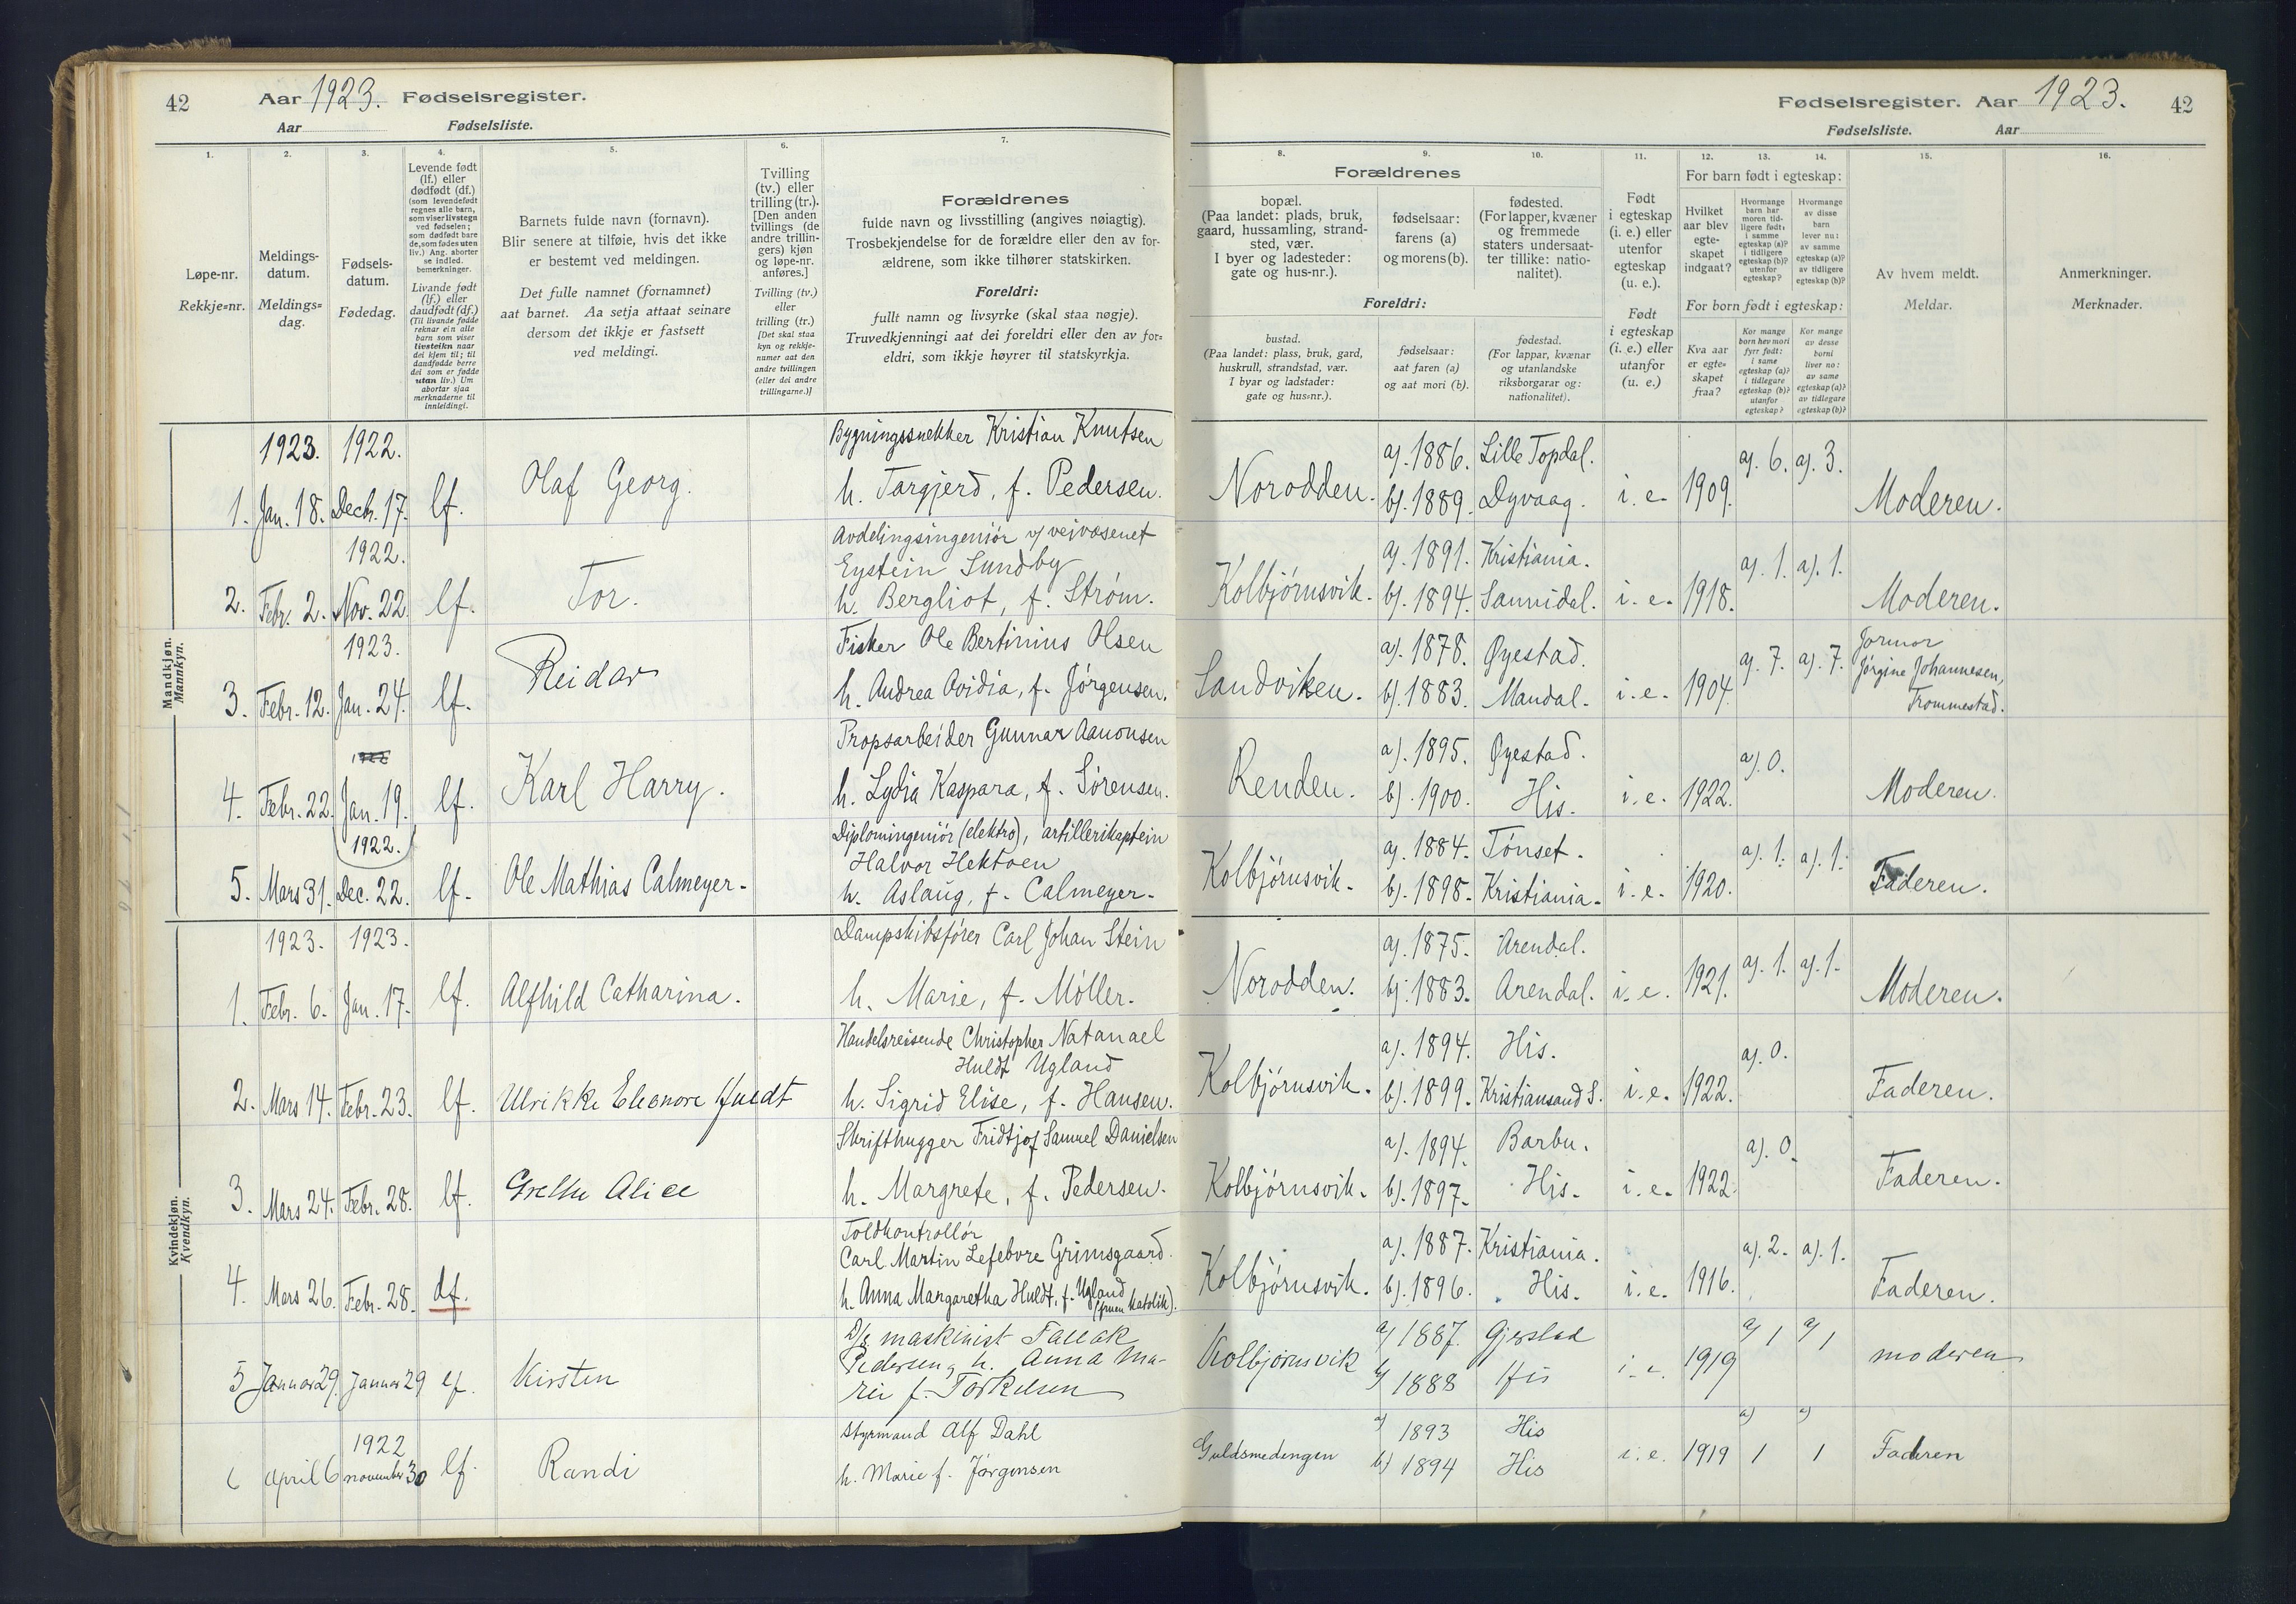 42 Aar 1923. Fødselsregister.
Aar Fødselsliste.
Fødselsregister. Aar 1923. 42
Fødselsliste. Aar
1. 2. 3. 4. 5. 6. 7.
Løpe-nr.
Rekkje=nr.
Meldings-
datum.
Meldings=
dag.
Fødsels-
datum.
Fødedag.
Levende født
(lf.) eller
dødfødt (df.)
(som levendefødt
regnes alle barn,
som viser livstegn
ved fødselen;
som dødfødt bare
de, som fødes uten
liv.) Ang. aborter
se indled.
bemerkninger.
Livande født
(lf.) eller
daudfødt (df.)
(Til livande fødde
reknar ein alle
barn som viser
livsteikn naar
dei kjem til; til
daudfødde berre
dei som er fødde
utan liv.) Um
abortar sjaa
merknaderne til
innleidingi.
Barnets fulde navn (fornavn).
Blir senere at tilføie, hvis det ikke
er bestemt ved meldingen.
Det fulle namnet (fornamnet)
aat barnet. Aa setja attaat seinare
dersom det ikkje er fastsett
ved meldingi.
Tvilling
(tv.) eller
trilling (tr.).
[Den anden
tvillings (de
andre trillin-
gers) kjøn
og løpe-nr.
anføres.]
Tvilling (tv.)
eller
trilling (tr.)
[Det skal staa
kyn og rekkje-
numer aat den
andre tvillingen
(eller dei andre
trillingarne.)]
Forældrenes
fulde navn og livsstilling (angives nøiagtig).
Trosbekjendelse for de forældre eller den av for-
ældrene, som ikke tilhører statskirken.
Foreldri:
fullt namn og livsyrke (skal staa nøgje).
Truvedkjenningi aat dei foreldri eller den av for=
eldri, som ikkje høyrer til statskyrkja.
8. 9. 10. 11. 12. 13. 14. 15. 16.
Forældrenes
bopæl.
(Paa landet: plads, bruk,
gaard, hussamling, strand-
sted, vær.
I byer og ladesteder:
gate og hus-nr.).
fødselsaar:
farens (a)
og morens (b).
fødested.
(For lapper, kvæner
og fremmede
staters undersaat-
ter tillike: natio-
nalitet).
Foreldri:
bustad.
(Paa landet: plass, bruk, gard,
huskrull, strandstad, vær.
I byar og ladstader:
gate og hus=nr.).
fødselsaar:
aat faren (a)
og aat mori (b).
fødestad.
(For lappar, kvænar
og utanlandske
riksborgarar og:
nationalitet).
Født
i egteskap
(i. e.) eller
utenfor
egteskap
(u. e.).
Født
i egteskap
(i. e.) eller
utanfor
(u. e.)
For barn født i egteskap:
Hvilket
aar blev
egte-
skapet
indgaat?
Hvormange
barn har
moren tid-
ligere født:
i samme
egteskap (a)?
i tidligere
egteskap (b)?
utenfor
egteskap?
Hvormange
av disse
barn
lever nu:
av samme
egteskap (a)?
av tidligere
egteskap (b)?
For born født i egteskap:
Kva aar
er egte=
skapet
fraa?
Kor mange
born hev mori
fyrr født:
i same
egteskap (a)?
i tidlegare
egteskap (b)?
utanfor
egteskap?
Kor mange
av desse
borni
liver no:
av same
egteskap (a)?
av tidlegare
egteskap (b)?
Av hvem meldt.
Meldar.
Anmerkninger.
Merknader.
Mandkjøn.
Mannkyn.
1923. 1922. Bygningssnekker Kristian Knutsen a). 1886. Lille Topdal. a). 6. a). 3.
1. Jan. 18. Decbr. 17. lf. Olaf Georg. h. Targjerd, f. Pedersen. Norodden. b). 1889. Dyvaag. i. e. 1909. Moderen.
1922. Avdelingsingeniør v/ veivæsenet
Eystein Sundby a). 1891. Kristiania. a). 1. a). 1.
2. Febr. 2. Nov. 22. lf. Tor. h. Bergliot, f. Strøm. Kolbjørnsvik. b). 1894. Sannidal. i. e. 1918. Moderen.
1923. Fisker Ole Bertinius Olsen a). 1878. Øyestad. a). 7. a). 7. Jormor
Jørgine Johannesen,
3. Febr. 12. Jan. 24. lf. Reidar h. Andrea Ovidia, f. Jørgensen. Sandviken. b). 1883. Mandal. i. e. 1904. Trommestad.
1922 Propsarbeider Gunnar Aanonsen a). 1895. Øyestad. a). 0.
4. Febr. 22. Jan. 19. lf. Karl Harry. h. Lydia Kaspara, f. Sørensen. Renden. b). 1900. His. i. e. 1922. Moderen.
1922. Diplomingeniør (elektro), artillerikaptein
Halvor Hektoen a). 1884. Tønset. a). 1. a). 1.
5. Mars 31. Dec. 22. lf. Ole Mathias Calmeyer. h. Aslaug, f. Calmeyer. Kolbjørnsvik. b). 1898. Kristiania. i. e. 1920. Faderen.
Kvindekjøn.
Kvendkyn.
1923. 1923. Dampskibsfører Carl Johan Stein a). 1875. Arendal. a). 1. a). 1.
1. Febr. 6. Jan. 17. lf. Alfhild Catharina. h. Marie, f. Møller. Norodden. b). 1883. Arendal. i. e. 1921. Moderen.
Handelsreisende Christopher Natanael
Huldt Ugland a). 1894. His. a). 0.
2. Mars 14. Febr. 23. lf. Ulrikke Eleonore Huldt h. Sigrid Elise, f. Hansen. Kolbjørnsvik. b). 1899. Kristiansand S. i. e. 1922. Faderen.
Skrifthugger Fridtjof Samuel Danielsen a). 1894. Barbu. a). 0.
3. Mars 24. Febr. 28. lf. Grethe Alice h. Margrete, f. Pedersen. Kolbjørnsvik. b). 1897. His. i. e. 1922. Faderen.
Toldkontrollør
Carl Martin Lefebvre Grimsgaard. a). 1887. Kristiania. a). 2. a). 1.
4. Mars 26. Febr. 28. df. h. Anna Margaretha Huldt, f. Ugland (fruen katolik). Kolbjørnsvik. b). 1896. His. i. e. 1916. Faderen.
D/s. maskinist Tallak a) 1887. Gjerstad a) 1 a) 1
Pedersen, h. Anna Ma-
5 Januar 29. Januar 29 lf. Kirsten rie f. Torkelsen Kolbjørnsvik b) 1888 His i. e. 1919 moderen
1922 Styrmand Alf Dahl a) 1893 His a) a)
6 April 6 november 30 lf. Randi h. Marie f. Jørgensen Guldsmedengen b) 1894 His i. e. 1919 1 1 Faderen